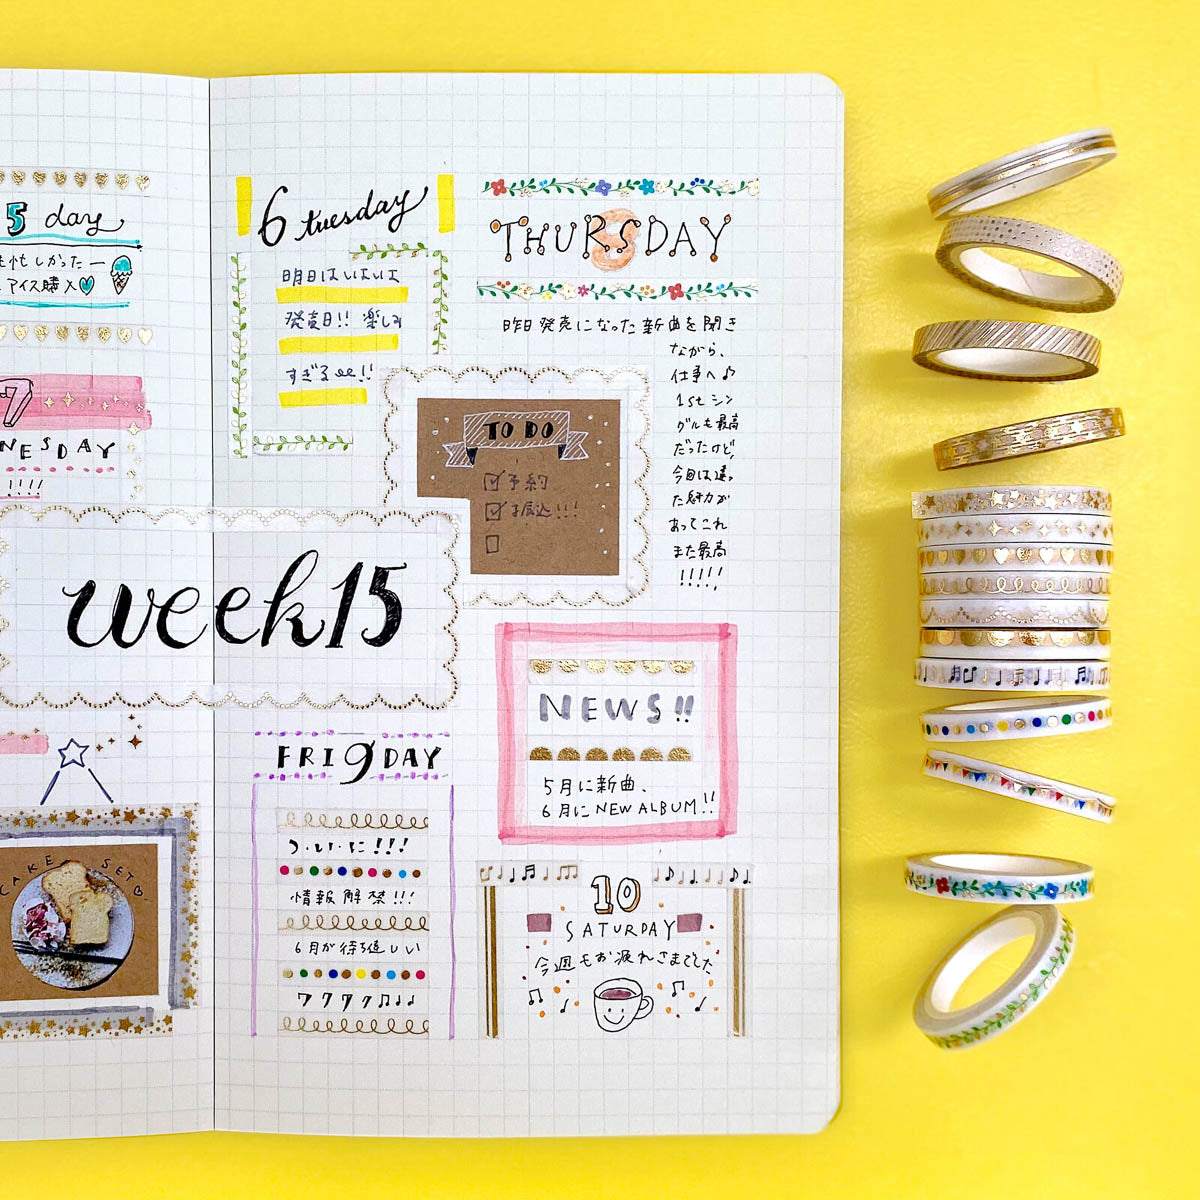 5 day
忙しかったー
アイス購入
7
NESDAY
!!!!
week15
CAKE SET
6 tuesday
明日はいよいよ
発売日!! 楽しみ
すぎる!!
THURSDAY
8
昨日発売になった新曲を聞き
ながら、
仕事へ♪
1st シン
グルも最高
だったけど、
今回は違っ
た魅力が
あってこれ
また最高
!!!!!
TO DO
予約
振込!!!
NEWS!!
5月に新曲、
6月にNEW ALBUM!!
FRI9DAY
つ・い・に!!!
情報解禁!!!
6月が待ち遠しい
ワクワク♫♩♩
10
SATURDAY
今週もお疲れさまでした